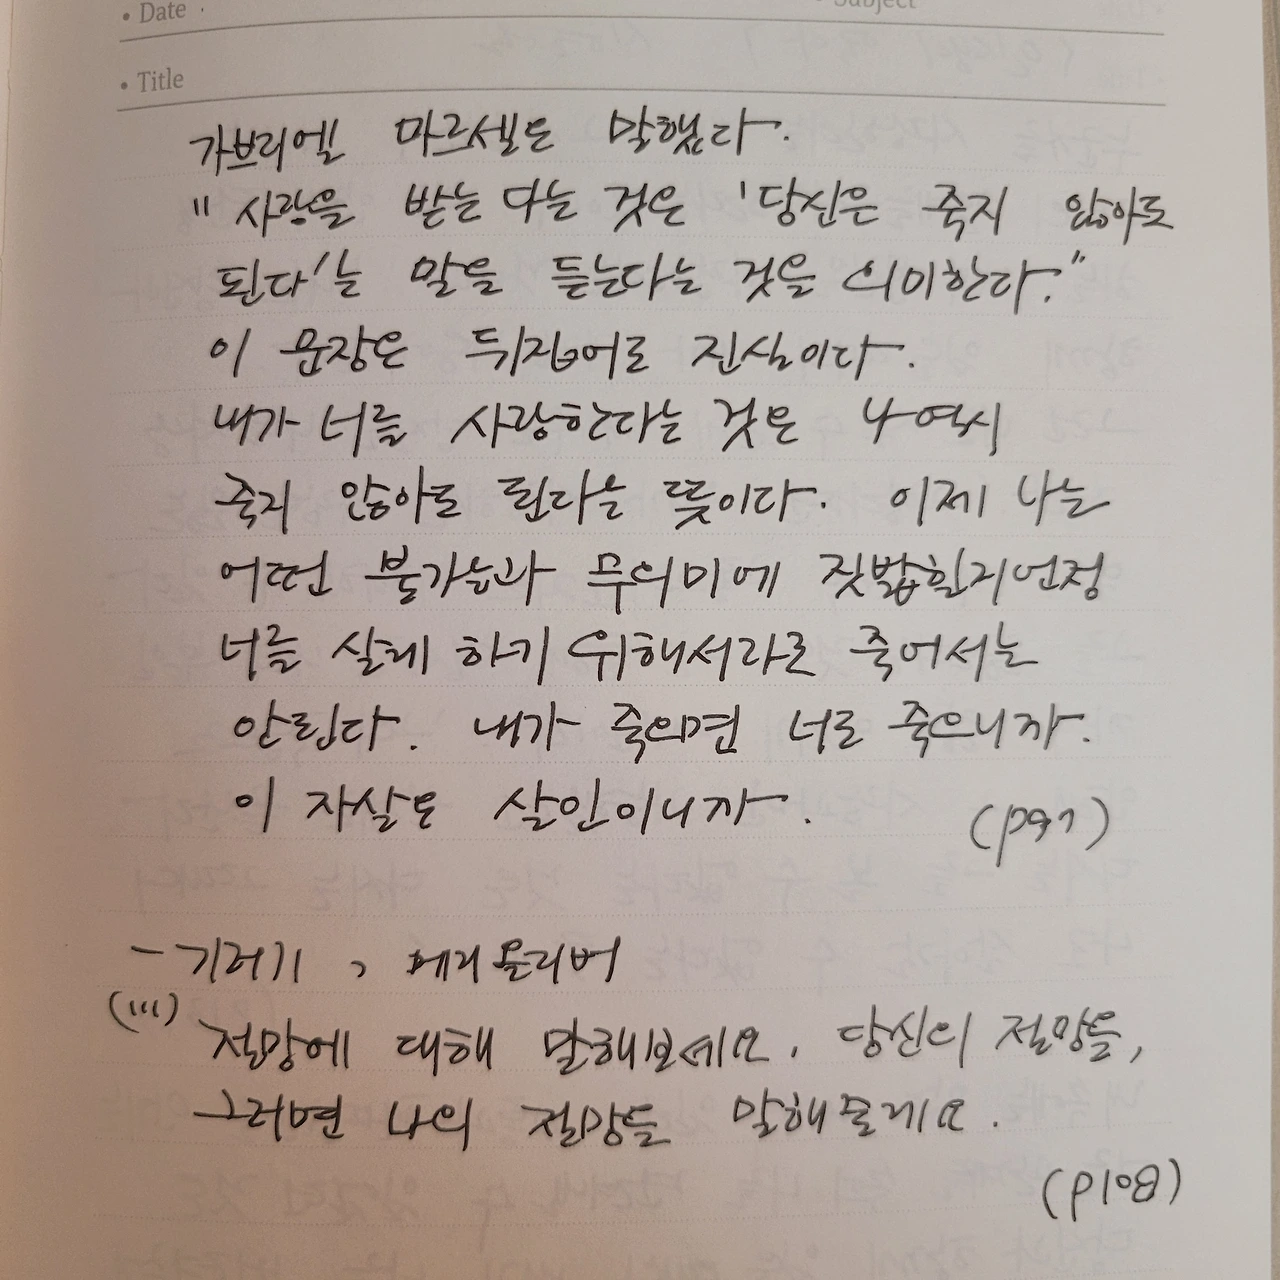 • Date
• Subject
• Title
가브리엘 마르셀도 말했다.
"사랑을 받는다는 것은 '당신은 죽지 않아도
된다'는 말을 듣는다는 것을 의미한다."
이 문장은 뒤집어도 진실이다.
내가 너를 사랑한다는 것은 나 역시
죽지 않아도 된다는 뜻이다. 이제 나는
어떤 불가능과 무의미에 짓밟힐지언정
너를 살게 하기 위해서라도 죽어서는
안된다. 내가 죽으면 너도 죽으니까.
이 자살도 살인이니까.
(p97)
- 기러기, 메리 올리버
(...) 절망에 대해 말해보세요. 당신의 절망을,
그러면 나의 절망을 말해줄게요.
(p108)